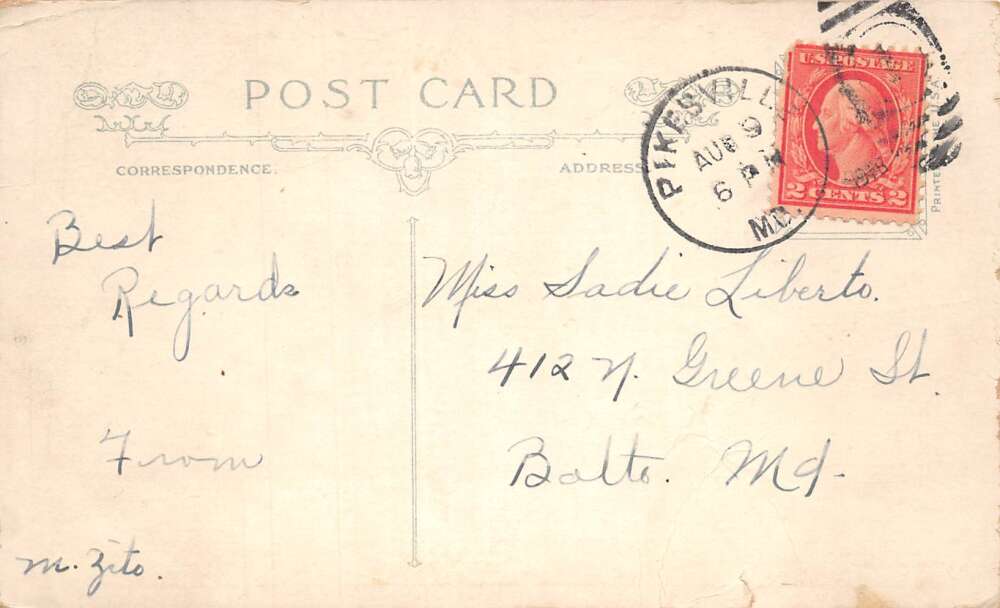 POST CARD
CORRESPONDENCE.
ADDRESS
PIKESVILLE
AUG 9
6 PM
MD.
U.S. POSTAGE
2 CENTS 2
Best
Regards
From
M. Zito.
Miss Sadie Liberto.
412 N. Greene St.
Balto. Md.
PRINTED